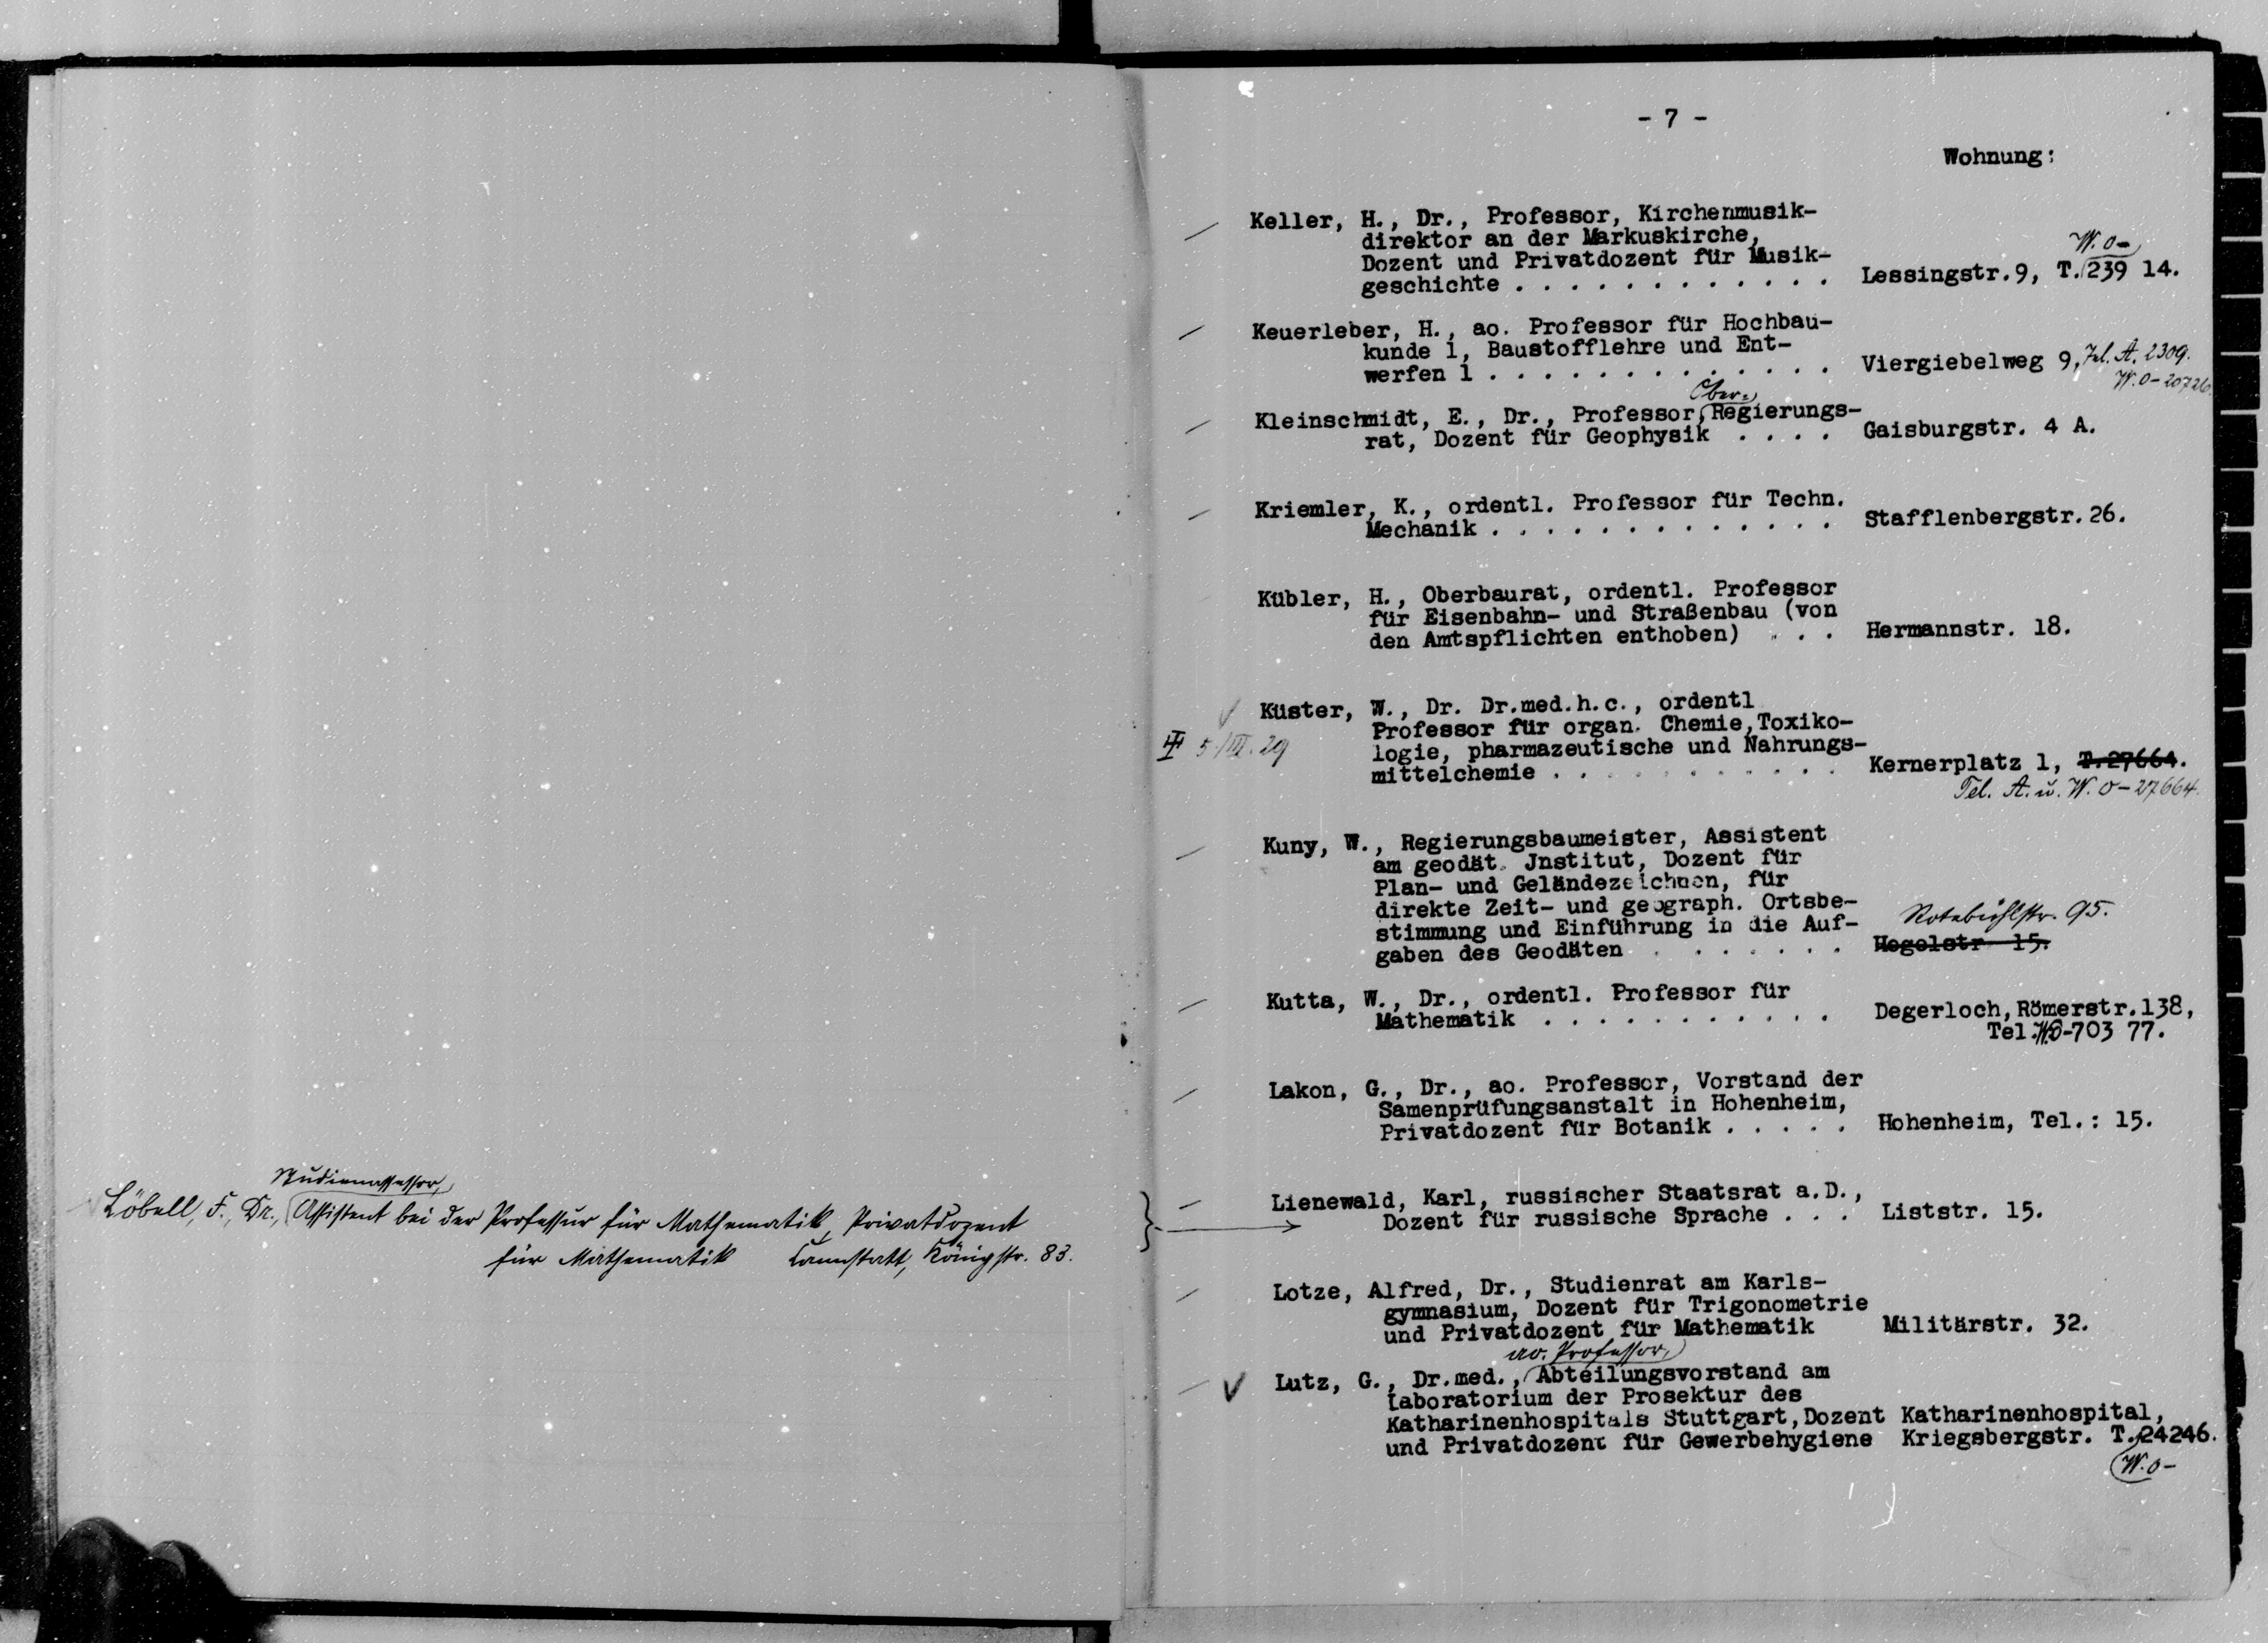 Studienassessor,
Löbell, F., Dr., Assistent bei der Professur für Mathematik, Privatdozent
für Mathematik Cannstatt, Königstr. 83.
- 7 -
Wohnung:
Keller, H., Dr., Professor, Kirchenmusik-
direktor an der Markuskirche,
Dozent und Privatdozent für Musik-
W. 0-
geschichte . . . . . . . . . . . . Lessingstr.9, T.239 14.
Keuerleber, H., ao. Professor für Hochbau-
kunde 1, Baustofflehre und Ent-
werfen 1 . . . . . . . . . . . . . Viergiebelweg 9, Tel. A. 2309.
W. 0-20726.
Ober-
Kleinschmidt, E., Dr., Professor, Regierungs-
rat, Dozent für Geophysik . . . . Gaisburgstr. 4 A.
Kriemler, K., ordentl. Professor für Techn.
Mechanik . . . . . . . . . . . . . Stafflenbergstr.26.
Kübler, H., Oberbaurat, ordentl. Professor
für Eisenbahn- und Straßenbau (von
den Amtspflichten enthoben) . . . Hermannstr. 18.
Küster, W., Dr. Dr.med.h.c., ordentl
Professor für organ. Chemie,Toxiko-
5./III.29 logie, pharmazeutische und Nahrungs-
mittelchemie . . . . . . . . . . . Kernerplatz 1, T.27664.
Tel. A. u. W. 0-27664.
Kuny, W., Regierungsbaumeister, Assistent
am geodät. Jnstitut, Dozent für
Plan- und Geländezeichnen, für
direkte Zeit- und geograph. Ortsbe-
stimmung und Einführung in die Auf- Rotebühlstr. 95.
gaben des Geodäten . . . . . . . Hegelstr 15.
Kutta, W., Dr., ordentl. Professor für
Mathematik . . . . . . . . . . . Degerloch,Römerstr.138,
Tel.W.0-703 77.
Lakon, G., Dr., ao. Professor, Vorstand der
Samenprüfungsanstalt in Hohenheim,
Privatdozent für Botanik . . . . . Hohenheim, Tel.: 15.
Lienewald, Karl, russischer Staatsrat a.D.,
Dozent für russische Sprache . . . Liststr. 15.
Lotze, Alfred, Dr., Studienrat am Karls-
gymnasium, Dozent für Trigonometrie
und Privatdozent für Mathematik Militärstr. 32.
ao. Professor,
Lutz, G., Dr.med., Abteilungsvorstand am
Laboratorium der Prosektur des
Katharinenhospitals Stuttgart,Dozent Katharinenhospital,
und Privatdozent für Gewerbehygiene Kriegsbergstr. T.24246.
W. 0-